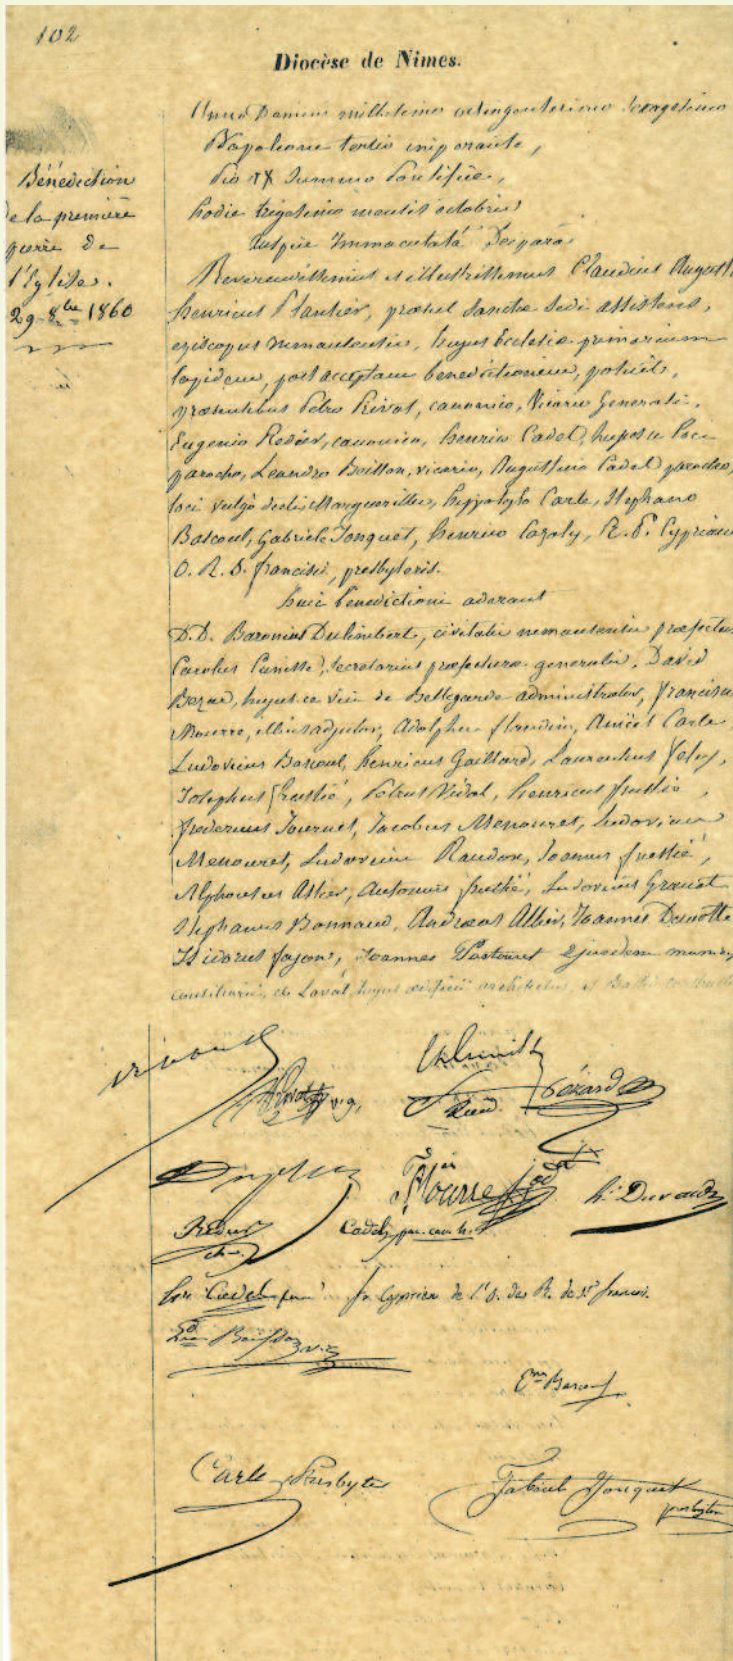 102
Diocèse de Nimes.
Bénédiction
de la première
pierre de
l'Eglise.
29 8bre 1860
Anno Domini millesimo octingentesimo sexagesimo
Napoleone tertio imperante,
Pio IX Summo Pontifice,
hodie trigesimo mensis octobris
auspice Immaculatâ Deiparâ
Reverendissimus et illustrissimus Claudius August
henricus Plantier, praesul Sanctae Sedi assistens,
episcopus nemausensis, hujus Ecclesiae primarium
lapidem, post acceptam benedictionem, posuit,
praesentibus Petro Privat, canonico, Vicario Generali,
Eugenio Redier, canonico, henrico Cadel, hujusce loci
parocho, Leandro Boisson, vicario, Augustino Cadel parocho,
loci vulgò dicti Marguerittes, hyppolyto Carle, Stephano
Bascoul, Gabriele Jonquet, henrico Cazaly, R. P. Cypriano
O. R. S. francisci, presbyteris.
huic benedictioni aderant
D.D. Baronius Dulimbert, civitatis nemausensis praefectus
Carolus secretarius praefecturae generalis, David
hujusce vici de Bellegarde administrator, francisc
Mourre, illius adjutor, Adolphus Carle
Ludovicus Bascoul, henricus Gaillard, Laurentius
Josephus frustié, Petrus Vidal, henricus frustié,
fredericus Journet, Jacobus Menouret, Ludovicus
Menouret, Ludovicus Raudon, Joannes frustié,
Alphonsus Allier, Antonius frustié, Ludovicus Granet
Stephanus Bonnaud, Andreas Allier, Joannes
Isidorus fajon, Joannes Pastouret ejusdem
consiliarii, et Laval hujus aedificii architectus, et
v.g.
Bézard
Mourre
h. Durand
Redier
Cadel
Cadel
fr Cyprien de l'O. des R. de St françois.
Boisson
Carle Presbyter
Gabriel Jonquet
presbyter